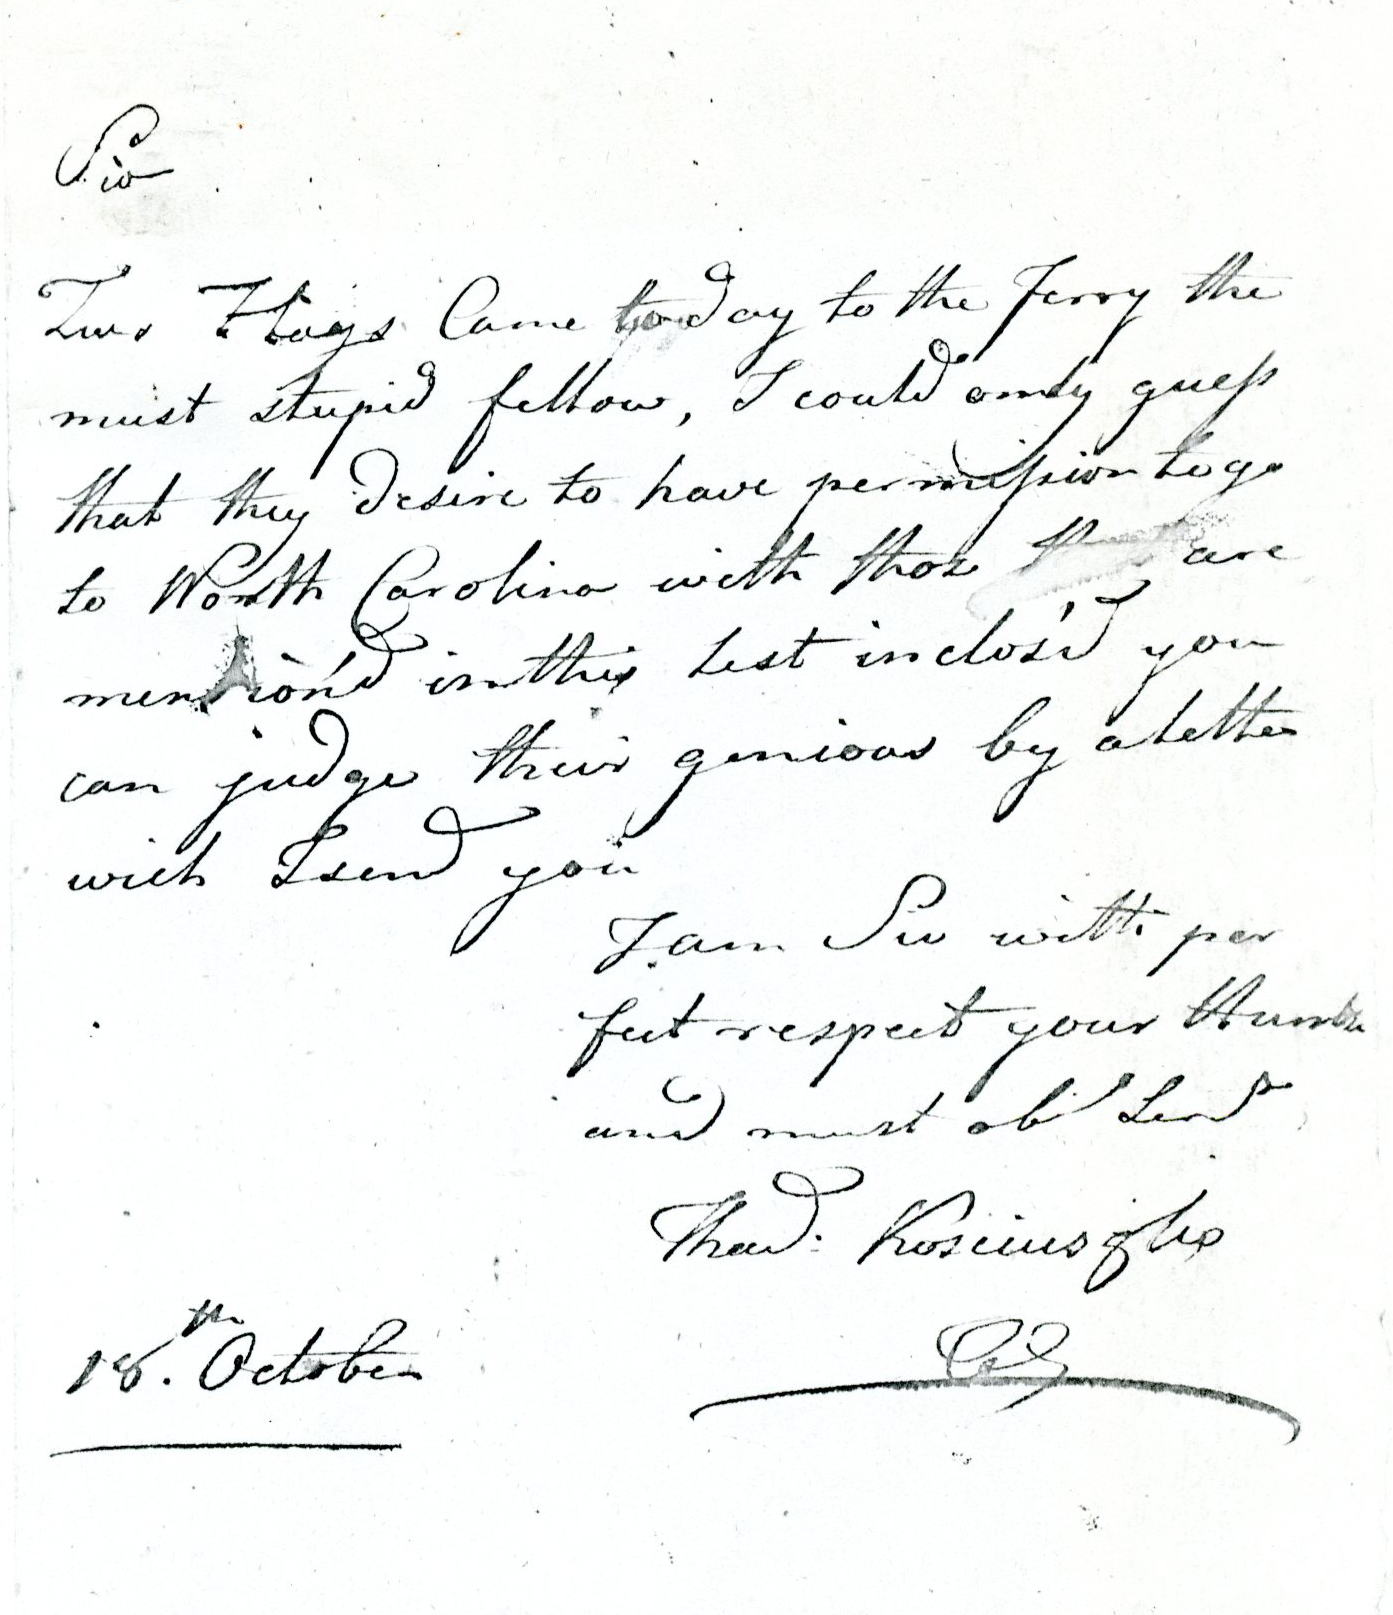 Sir
Two Flags Came today to the Ferry the
must stupid fellow, I could only guess
that they desire to have permission to go
to North Carolina with thos are
mention'd in this List inclos'd you
can judge their genious by a letter
wich I send you
I am Sir with per
fect respect your Humble
and must ob Serv
Thad: Kosciuszko
Col
18.th October